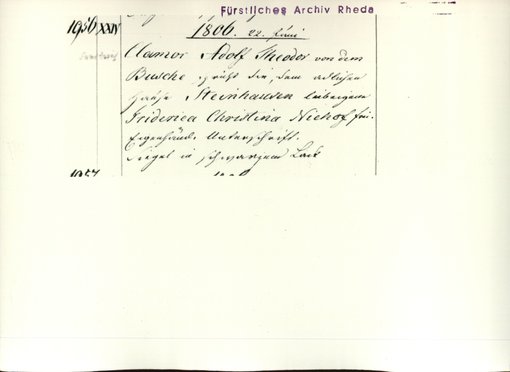 Fürstliches Archiv Rheda
1956 XXIV
1806. 22. Juni
Clamor Adolf Theodor von dem
Busche, spricht die, dem adlichen
Hause Steinhausen leibeigene
Friderica Christina Niehof frei.
Eigenhänd. Unterschrift.
Siegel in schwarzem Lack
1957